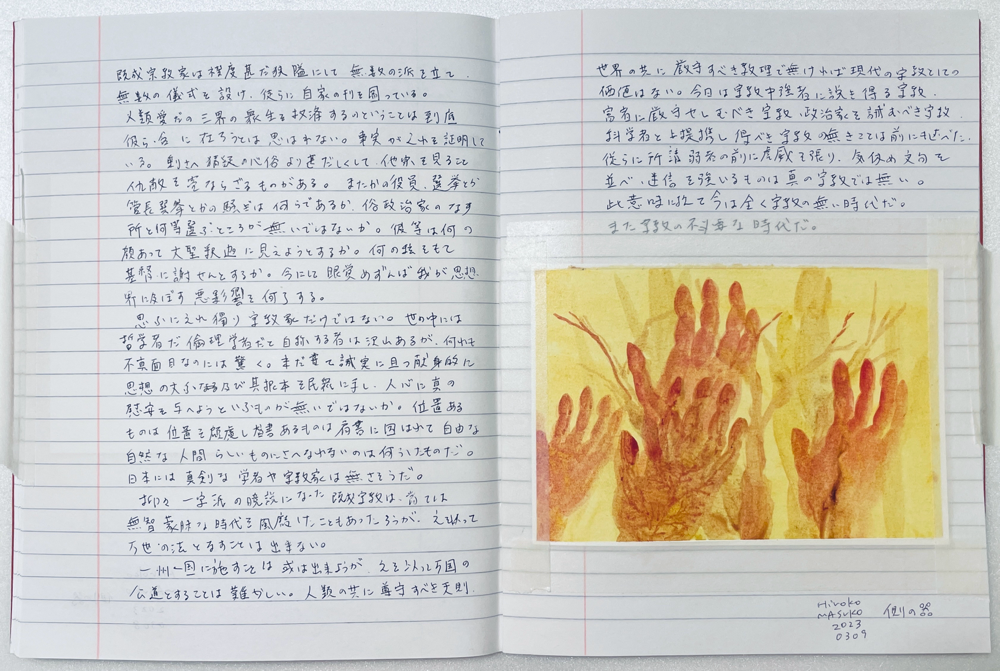 既成宗教家は程度甚だ狭隘にして、無数の派を立て、
無数の儀式を設け、徒らに自家の利を図っている。
人類愛だの三界の衆生を救済するのということは到底
彼らの念に在ろうとは思はれない。事実がそれを証明して
いる。剰さへ猜疑の心俗より甚だしくして、他宗を見ること
仇敵も啻ならざるものがある。またかの役員、選挙とか
管長選挙とかの騒ぎは何うであるか、俗政治家のなす
所と何等選ぶところが無いではないか。彼等は何の
顔あって大聖釈迦に見えようとするか。何の
基督に謝せんとするか。今にして眼覚めずんば我が思想
界に及ぼす悪影響を何うする。
思ふにそれ独り宗教家だけではない。世の中には
哲学者だ倫理学者だと自称する者は沢山あるが、何れも
不真面目なのには驚く。まだ嘗て誠実に且つ献身的に
思想の大及び其根本を民衆に示し、人心に真の
慰安を与へようといふものが無いではないか。位置ある
ものは位置を顧慮し肩書あるものは肩書に囚はれて自由な
自然な人間らしいものにさへなれないのは何ういうものだ。
日本には真剣な学者や宗教家は無さそうだ。
抑々一宗派の暁説になった既成宗教は、嘗ては
無智蒙昧な時代を風靡したこともあったろうが、それ以って
万世の法となすことは出来ない。
一州一国に施すことは或は出来ようが、それを以って万国の
公道とすることは難かしい。人類の共に尊守すべき天則、
世界の共に厳守すべき教理で無ければ現代の宗教としての
価値はない。今日は宗教中強者に説き得る宗教、
富者に厳守せしむべき宗教、政治家を誡むべき宗教
科学者と上提携し得べき宗教の無きことは前にも述べた。
徒らに所謂弱者の前に虚威を張り、気休め文句を
並べ、迷信を強いるものは真の宗教では無い。
此意味に於て今は全く宗教の無い時代だ。
また宗教の不必要な時代だ。
Hiroko
MASUKO
2023
0309
側の器